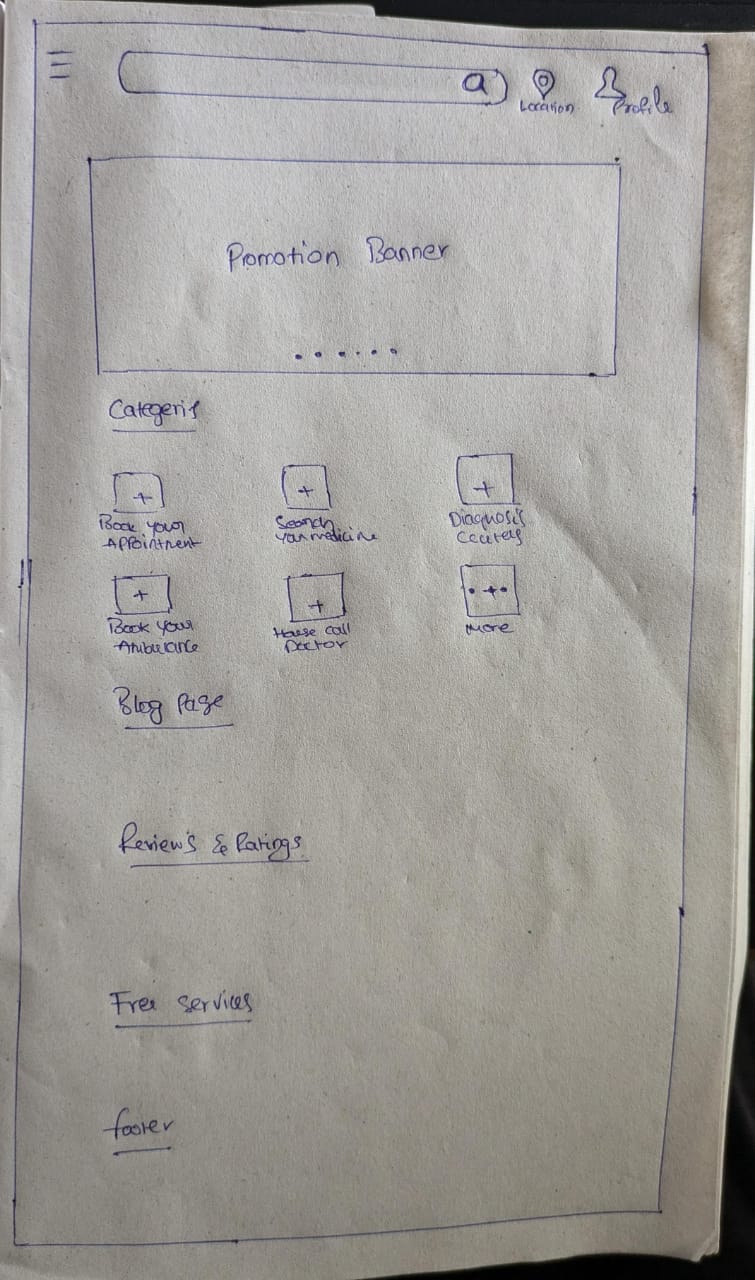 Location
Profile
Promotion Banner
Categeris
Book your
Appointment
Search
your medicine
Diagnosis
Book your
Ambulance
House call
Doctor
More
Blog Page
Review's & Ratings
Free services
footer